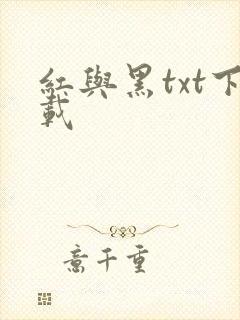 紅與黑txt下
載
意千重